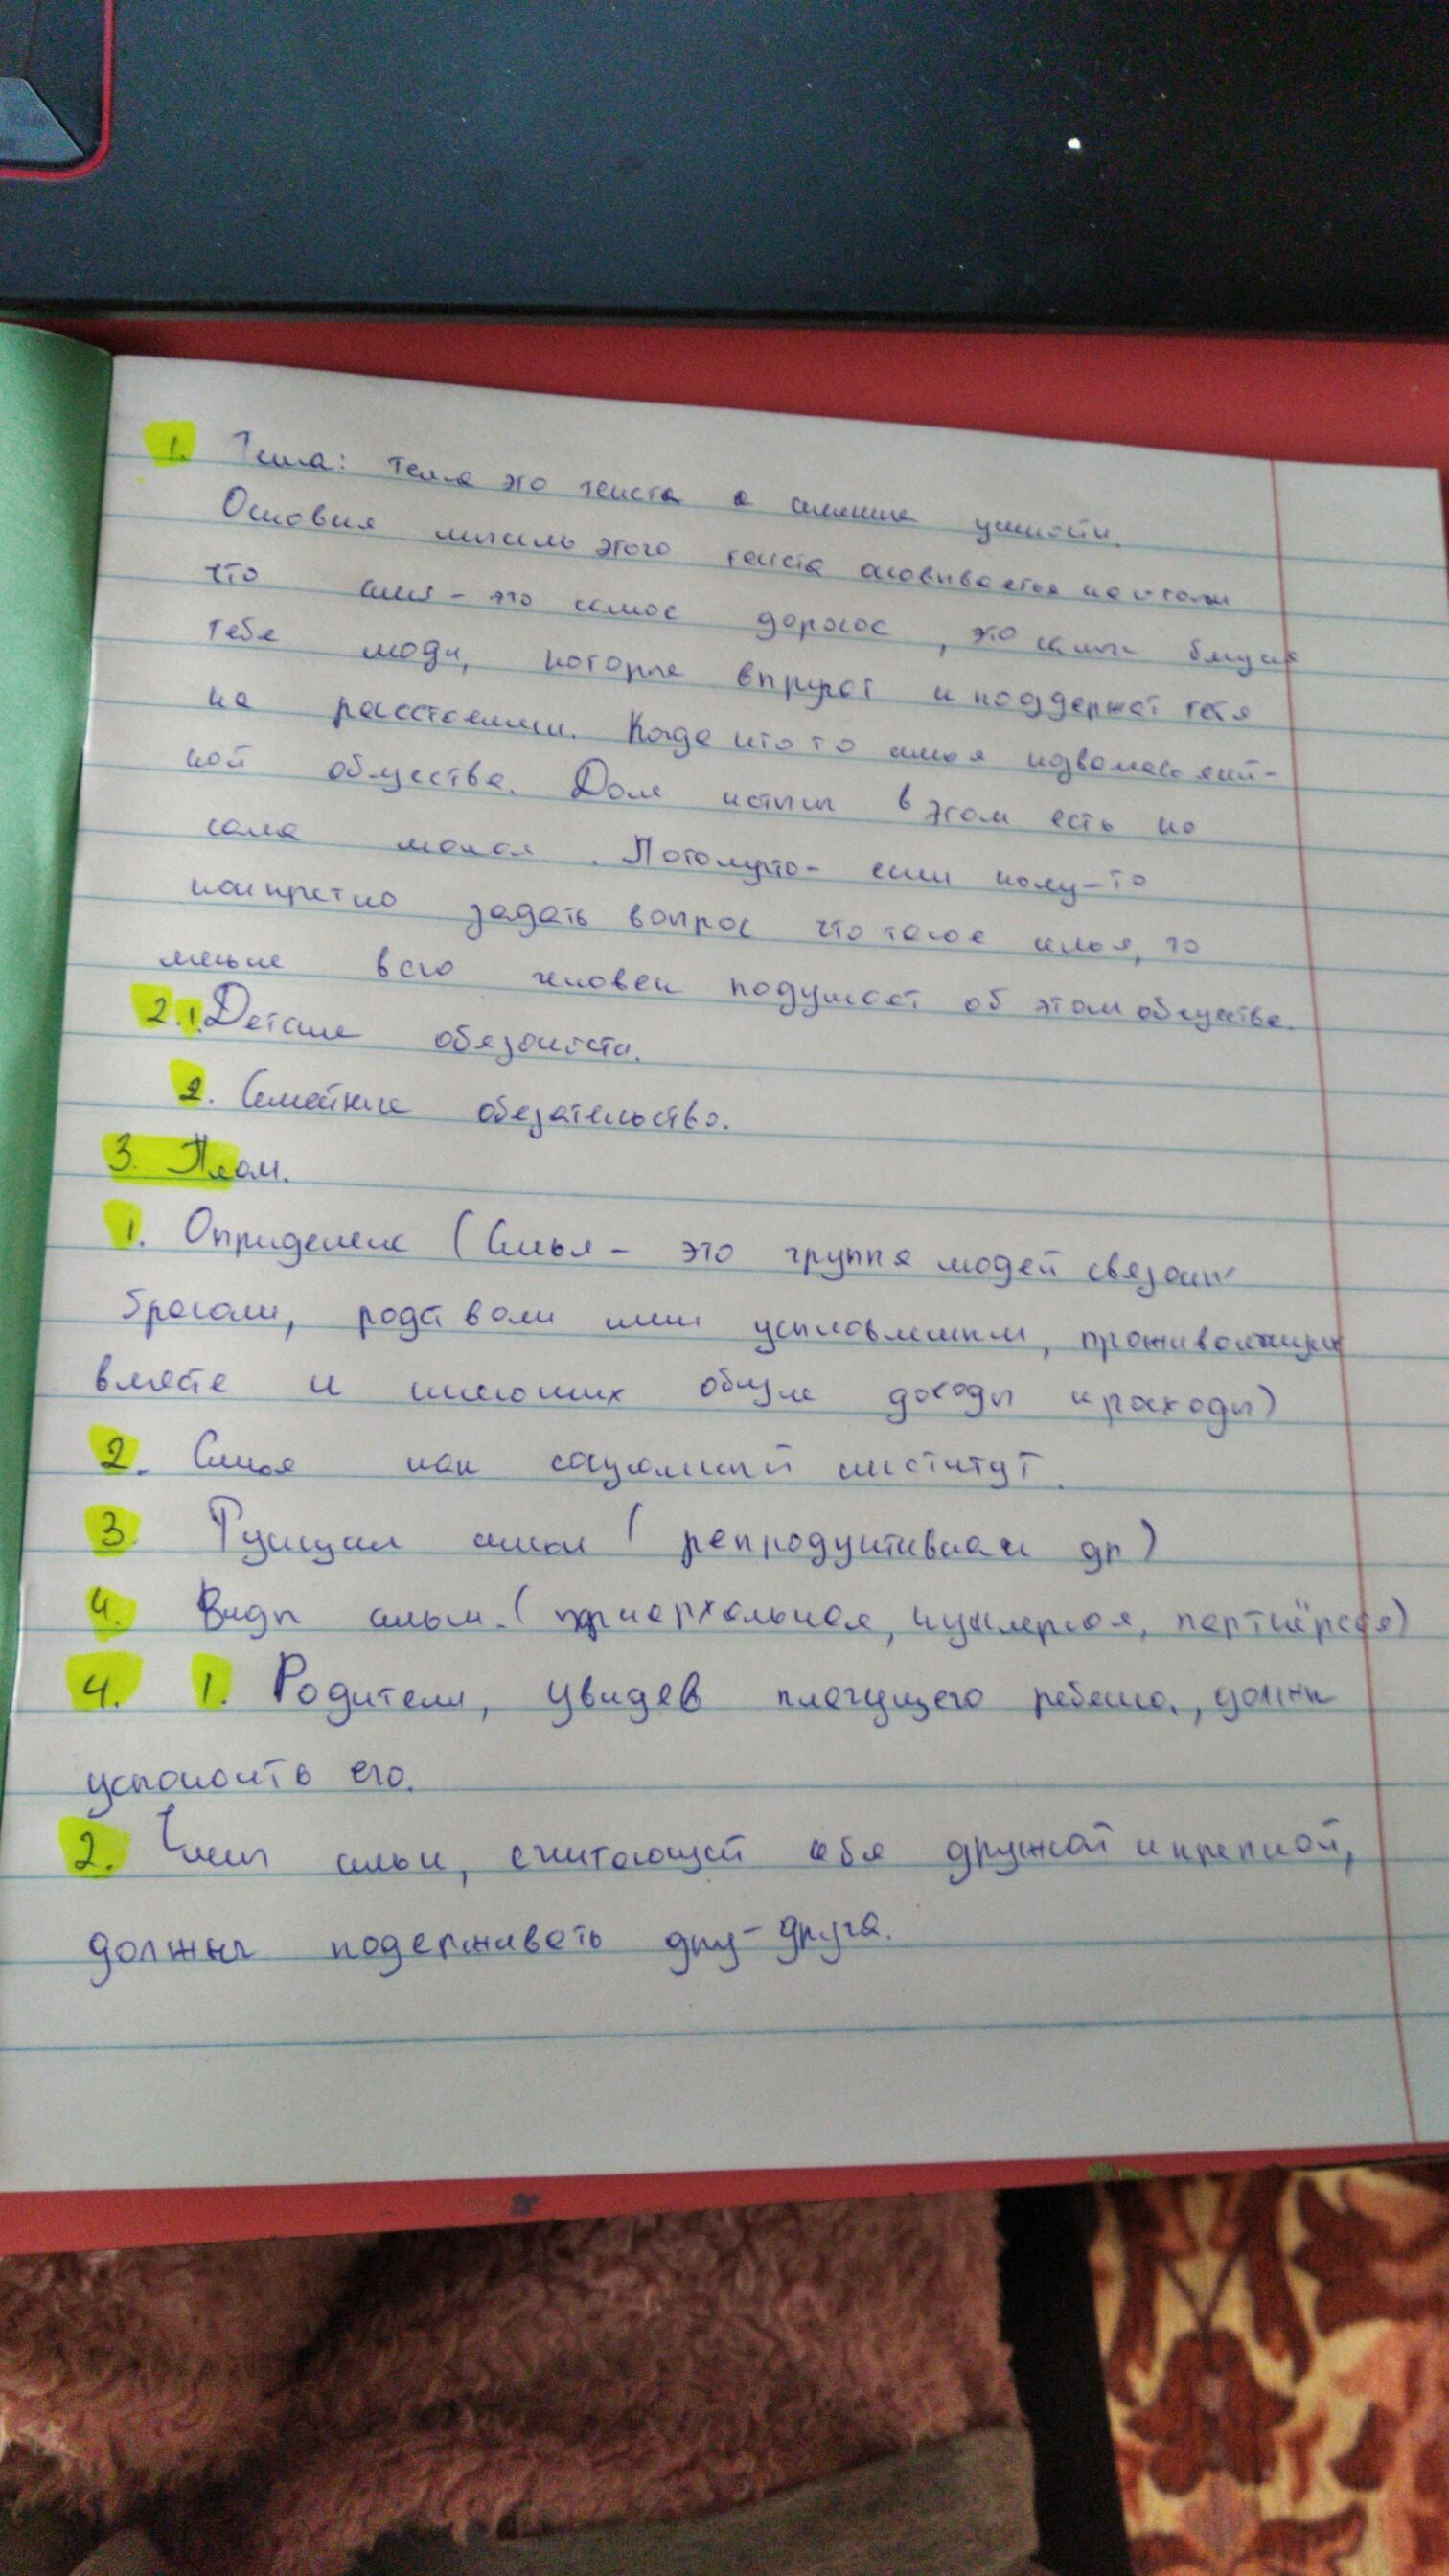 1. Тема: тема это текста о семейные
Основня мысль этого текста
что семя - это самое дорогое, это самы
тебе люди, которые и поддержат тебя
на расстоянии. Когда кто то семья
кой общества. Доля истины в этом есть но
сама малая. Потомучто - если кому-то
конкретно задать вопрос что такое семья, то
меньше всего человек подумает об этом обществе.
2. 1. Детские обязаности.
2. Семейные обезательство.
3. План.
1. Определене (Семья - это группа людей связаны
браком, родством или усыновлением, проживающих
вместе и имеющих общие доходы и расходы)
2. Семья как социальный институт.
3. Функции семьи (репродуктивная и др)
4. Виды семьи. ( нуклерная, партнёрская)
4. 1. Родители, увидев плачущего ребенка, должны
успокоить его.
2. Члены семьи, считающей себя дружной и крепкой,
должны подерживать друг-друга.